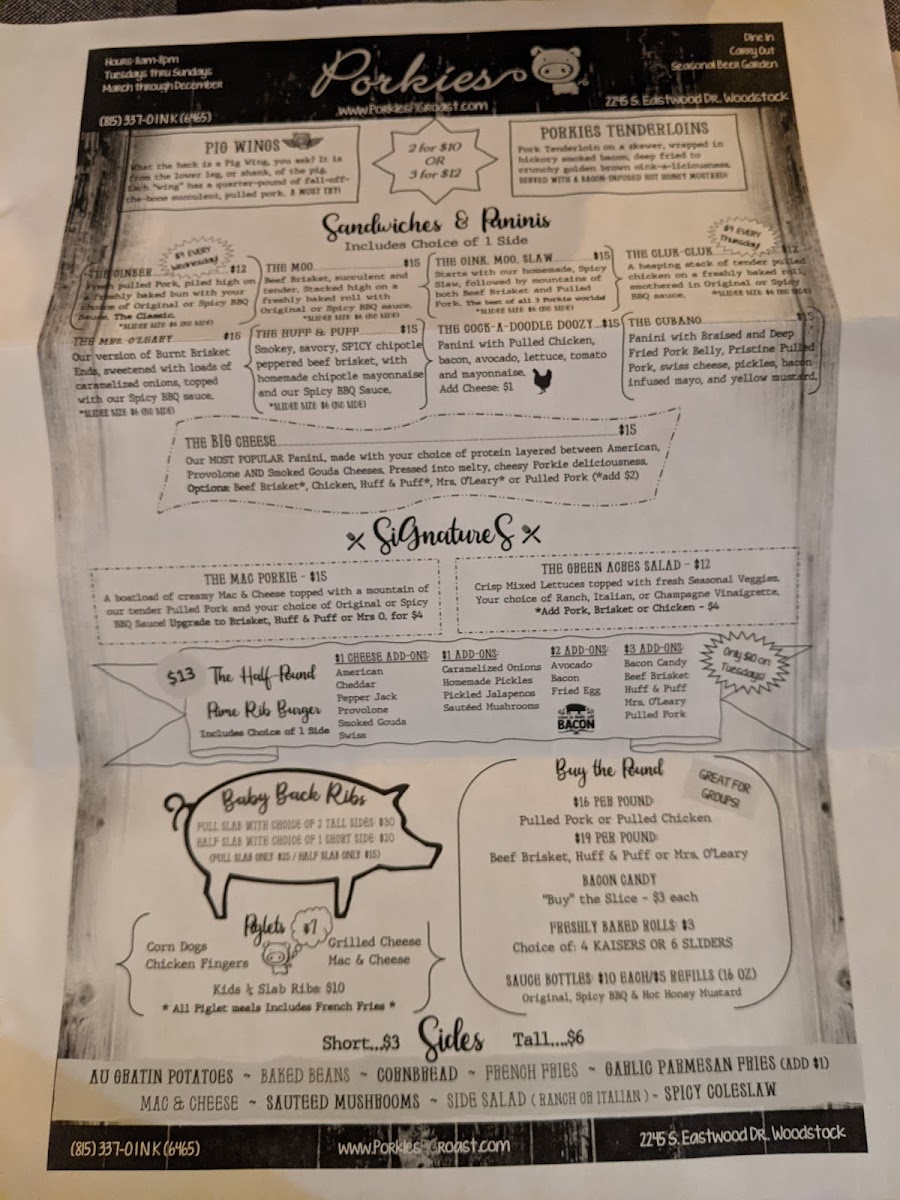 Hours: 11am-8pm
Tuesdays thru Sundays
March through December
(815) 337-OINK (6465)
Porkies
www.PorkiesPigRoast.com
Dine In
Carry Out
Seasonal Beer Garden
2245 S. Eastwood Dr., Woodstock
PIG WINGS
What the heck is a Pig Wing, you ask? It is
from the lower leg, or shank, of the pig.
Each "wing" has a quarter-pound of fall-off-
the-bone succulent, pulled pork. A MUST TRY!
2 for $10
OR
3 for $12
PORKIES TENDERLOINS
Pork Tenderloin on a skewer, wrapped in
hickory smoked bacon, deep fried to
crunchy golden brown oink-a-liciousness.
SERVED WITH A BACON-INFUSED HOT HONEY MUSTARD!
Sandwiches & Paninis
Includes Choice of 1 Side
$9 EVERY
Wednesday!
THE OINKER $12
Fresh pulled Pork, piled high on
a freshly baked bun with your
choice of Original or Spicy BBQ
Sauce. The Classic.
*SLIDER SIZE: $6 (NO SIDE)
THE MOO $15
Beef Brisket, succulent and
tender. Stacked high on a
freshly baked roll with
Original or Spicy BBQ sauce.
*SLIDER SIZE: $6 (NO SIDE)
THE OINK, MOO, SLAW $15
Starts with our homemade, Spicy
Slaw, followed by mountains of
both Beef Brisket and Pulled
Pork. The best of all 3 Porkie worlds!
*SLIDER SIZE: $6 (NO SIDE)
$9 EVERY
Thursday!
THE CLUK-CLUK $12
A heaping stack of tender pulled
chicken on a freshly baked roll,
smothered in Original or Spicy
BBQ sauce.
*SLIDER SIZE: $6 (NO SIDE)
THE MRS. O'LEARY $15
Our version of Burnt Brisket
Ends, sweetened with loads of
caramelized onions, topped
with our Spicy BBQ sauce.
*SLIDER SIZE: $6 (NO SIDE)
THE HUFF & PUFF $15
Smokey, savory, SPICY chipotle
peppered beef brisket, with
homemade chipotle mayonnaise
and our Spicy BBQ Sauce.
*SLIDER SIZE: $6 (NO SIDE)
THE COCK-A-DOODLE DOOZY...$15
Panini with Pulled Chicken,
bacon, avocado, lettuce, tomato
and mayonnaise.
Add Cheese: $1
THE CUBANO $15
Panini with Braised and Deep
Fried Pork Belly, Pristine Pulled
Pork, swiss cheese, pickles, bacon
infused mayo, and yellow mustard.
THE BIG CHEESE $15
Our MOST POPULAR Panini, made with your choice of protein layered between American,
Provolone AND Smoked Gouda Cheeses. Pressed into melty, cheesy Porkie deliciousness.
Options: Beef Brisket*, Chicken, Huff & Puff*, Mrs. O'Leary* or Pulled Pork (*add $2)
SiGnatureS
THE MAC PORKIE - $15
A boatload of creamy Mac & Cheese topped with a mountain of
our tender Pulled Pork and your choice of Original or Spicy
BBQ Sauce! Upgrade to Brisket, Huff & Puff or Mrs O. for $4
THE GREEN ACRES SALAD - $12
Crisp Mixed Lettuces topped with fresh Seasonal Veggies.
Your choice of Ranch, Italian, or Champagne Vinaigrette.
*Add Pork, Brisket or Chicken - $4
$13 The Half-Pound
Prime Rib Burger
Includes Choice of 1 Side
$1 CHEESE ADD-ONS:
American
Cheddar
Pepper Jack
Provolone
Smoked Gouda
Swiss
$1 ADD-ONS:
Caramelized Onions
Homemade Pickles
Pickled Jalapenos
Sautéed Mushrooms
$2 ADD-ONS:
Avocado
Bacon
Fried Egg
BACON
$3 ADD-ONS:
Bacon Candy
Beef Brisket
Huff & Puff
Mrs. O'Leary
Pulled Pork
Only $10 on
Tuesdays!
Baby Back Ribs
FULL SLAB WITH CHOICE OF 2 TALL SIDES: $30
HALF SLAB WITH CHOICE OF 1 SHORT SIDE: $20
(FULL SLAB ONLY $25 / HALF SLAB ONLY $15)
Piglets $7
Corn Dogs
Chicken Fingers
Grilled Cheese
Mac & Cheese
Kids ¼ Slab Ribs: $10
* All Piglet meals Includes French Fries *
Buy the Pound
GREAT FOR
GROUPS!
$16 PER POUND:
Pulled Pork or Pulled Chicken
$19 PER POUND:
Beef Brisket, Huff & Puff or Mrs. O'Leary
BACON CANDY
"Buy" the Slice - $3 each
FRESHLY BAKED ROLLS: $3
Choice of: 4 KAISERS OR 6 SLIDERS
SAUCE BOTTLES: $10 EACH/$5 REFILLS (16 OZ)
Original, Spicy BBQ & Hot Honey Mustard
Short...$3 Sides Tall....$6
AU GRATIN POTATOES ~ BAKED BEANS ~ CORNBREAD ~ FRENCH FRIES ~ GARLIC PARMESAN FRIES (ADD $1)
MAC & CHEESE ~ SAUTEED MUSHROOMS ~ SIDE SALAD ( RANCH OR ITALIAN ) ~ SPICY COLESLAW
(815) 337-OINK (6465)
www.PorkiesPigRoast.com
2245 S. Eastwood Dr., Woodstock